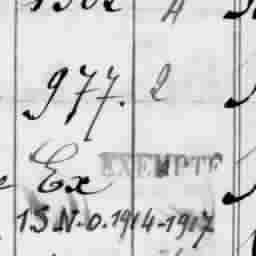 977. 2
Ex EXEMPTE
15 N-0.1914-1917